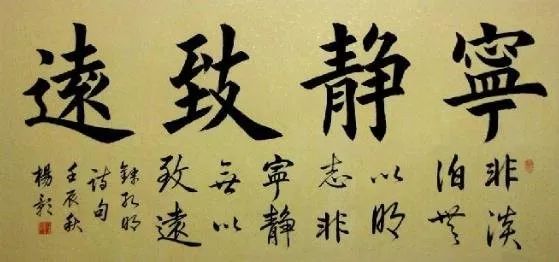 寧静致遠
非淡
泊無
以明
志非
寧静
無以
致遠
錄孔明
詩句
壬辰秋
楊